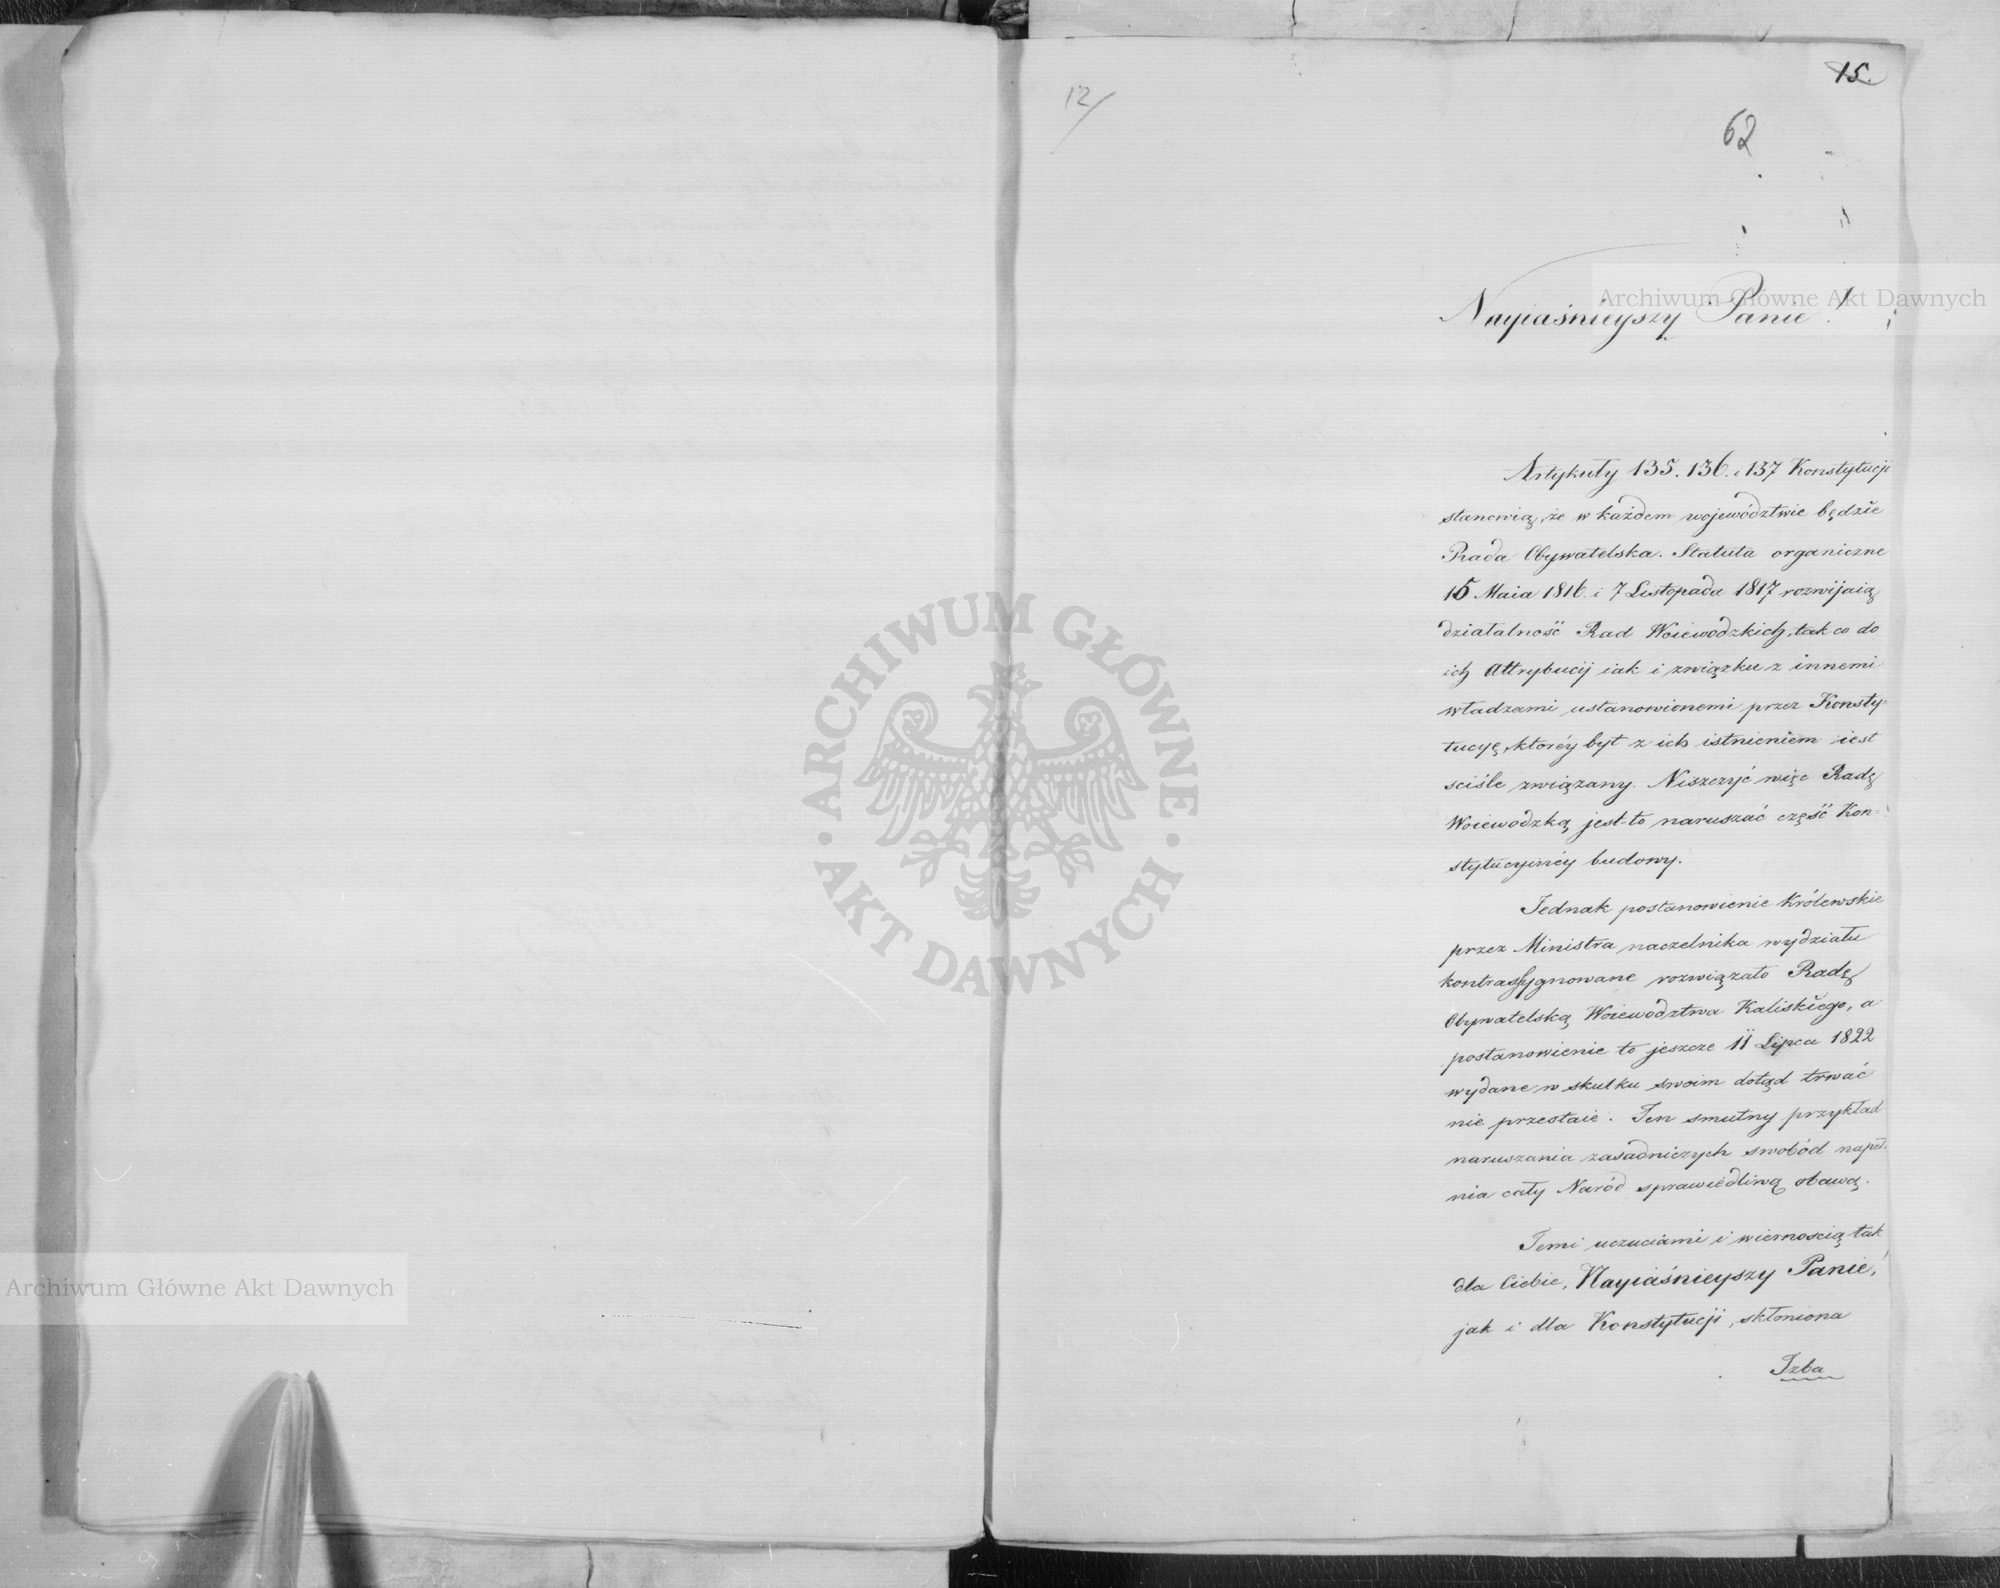 15.
12/
62
Nayiaśnieyszy Panie!
Artykuły 135. 136. i 137 Konstytucji
stanowią, że w każdem województwie będzie
Rada Obywatelska. Statuta organiczne
15 Maia 1816. i 7 Listopada 1817 rozwijaią
działalność Rad Woiewodzkich, tak co do
ich Attrybucij iak i związku z innemi
władzami ustanowionemi przez Konsty-
tucyę, któréy byt z ich istnieniem iest
sciśle związany. Niszczyć więc Radę
Woiewodzką jest-to naruszać część Kon-
stytucyjnéy budowy.
Jednak postanowienie Królewskie
przez Ministra naczelnika wydziału
kontrassygnowane rozwiązało Radę
Obywatelską Woiewodztwa Kaliskiego, a
postanowienie to jeszcze 11 Lipca 1822
wydane w skutku swoim dotąd trwać
nie przestaie. Ten smutny przykład
naruszania zasadniczych swobód napeł-
nia cały Naród sprawiedliwą obawą.
Temi uczuciami i wiernoscią tak
dla Ciebie, Nayiaśnieyszy Panie,
jak i dla Konstytucji, skłoniona
Izba
Archiwum Główne Akt Dawnych
ARCHIWUM GŁÓWNE · AKT DAWNYCH ·
Archiwum Główne Akt Dawnych